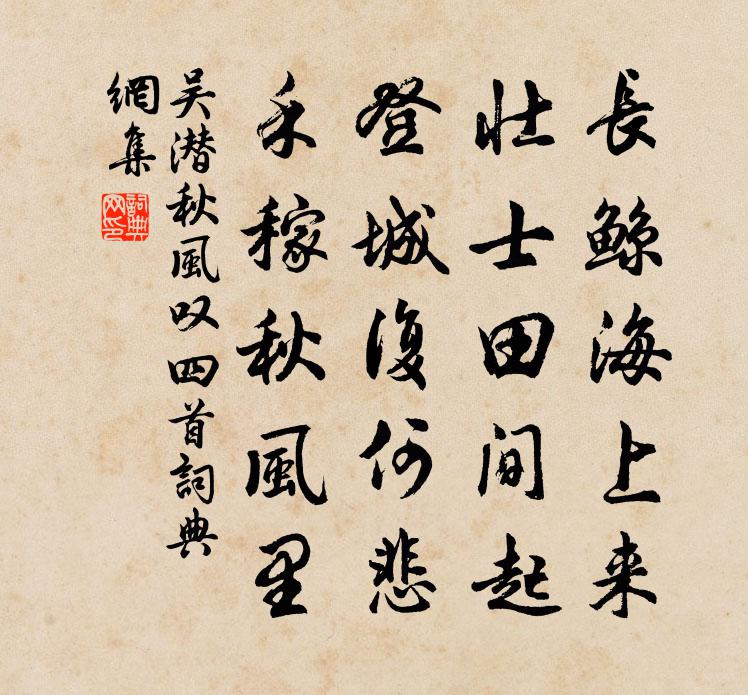 長鲸海上来
壮士田间起
登城復何悲
禾稼秋風里
吴潜秋風叹四首詞典
網集
詞典网印